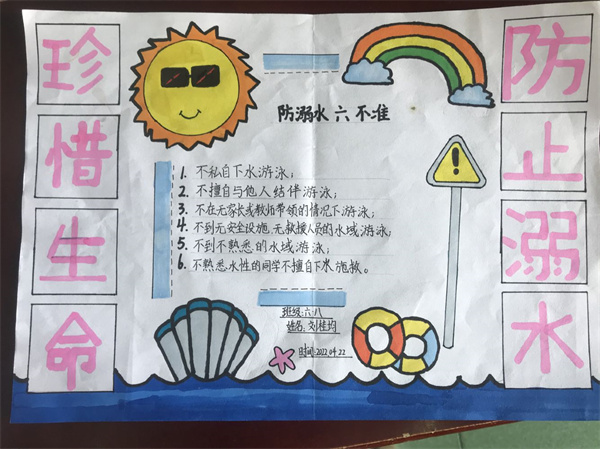 珍惜生命
防止溺水
防溺水六不准
1. 不私自下水游泳；
2. 不擅自与他人结伴游泳；
3. 不在无家长或教师带领的情况下游泳；
4. 不到无安全设施、无救援人员的水域游泳；
5. 不到不熟悉的水域游泳；
6. 不熟悉水性的同学不擅自下水施救。
班级:六.八
姓名:刘桂均
时间:2022.04.22
!